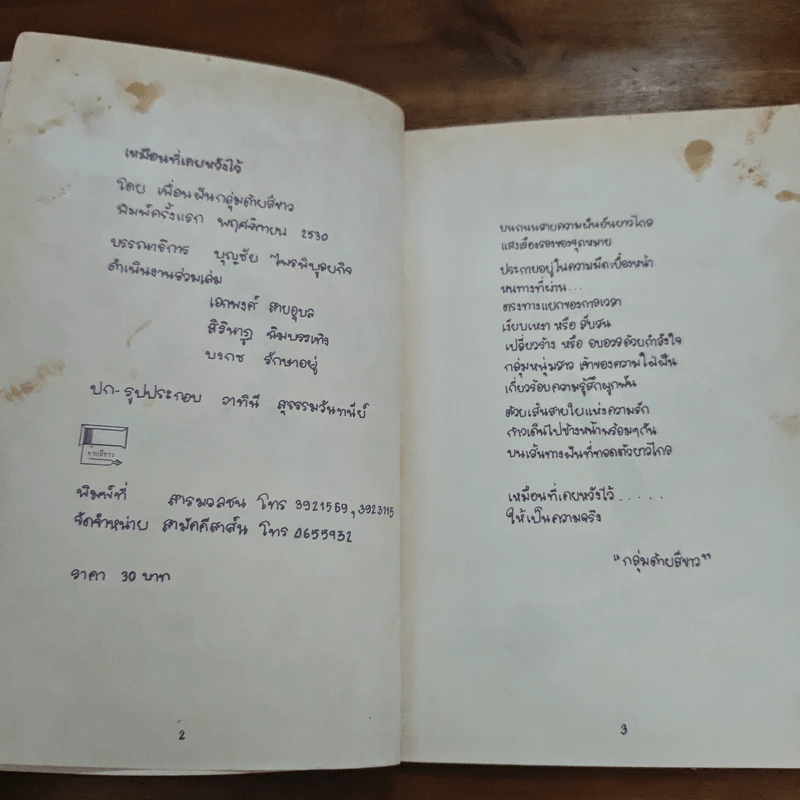 เหมือนที่เคยหวังไว้
โดย เพื่อนฝันกลุ่มด้ายสีขาว
พิมพ์ครั้งแรก พฤศจิกายน 2530
บรรณาธิการ บุญชัย ไพรพิบูลยกิจ
ดำเนินงานร่วมเล่ม
เอกพงศ์ สายอุบล
สิรินาฏ พิมบรรเทิง
บงกช รักษาอยู่
ปก-รูปประกอบ วาทินี สุธรรมวันทนีย์
พิมพ์ที่ สารมวลชน โทร 3921569, 3923115
จัดจำหน่าย สามัคคีสาส์น โทร 0655932
ราคา 30 บาท
2
บนถนนสายความฝันอันยาวไกล
แสงเรืองรองของจุดหมาย
ประกายอยู่ในความมืดเบื้องหน้า
หนทางที่ผ่าน...
ตรงทางแยกของกาลเวลา
เงียบเหงา หรือ สับสน
เปลี่ยวร้าง หรือ อบอวลด้วยกำลังใจ
กลุ่มหนุ่มสาว เจ้าของความใฝ่ฝัน
เกี่ยวร้อยความรู้สึกผูกพัน
ด้วยเส้นสายใยแห่งความรัก
ก้าวเดินไปข้างหน้าพร้อมๆกัน
บนเส้นทางฝันที่ทอดตัวยาวไกล
เหมือนที่เคยหวังไว้.....
ให้เป็นความจริง
"กลุ่มด้ายสีขาว"
3